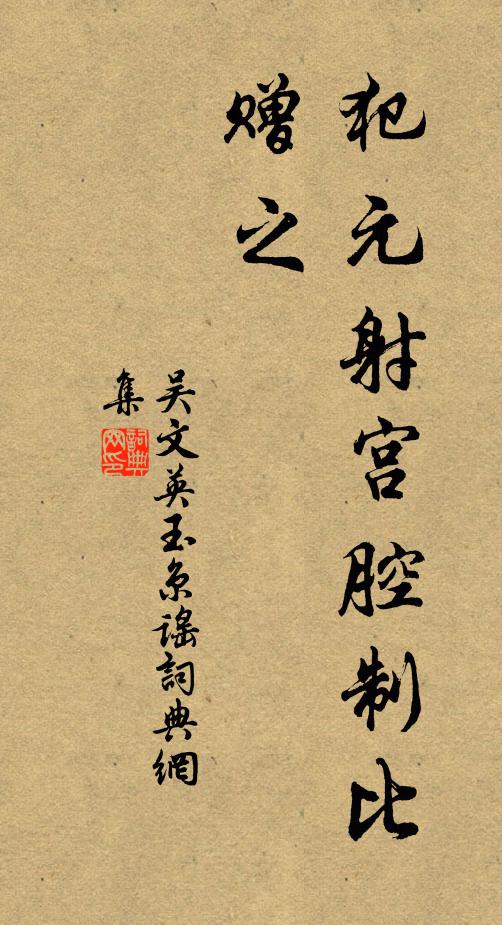 犯元射宫腔制比
赠之
吴文英玉京謠詞典網
集
詞典
网印